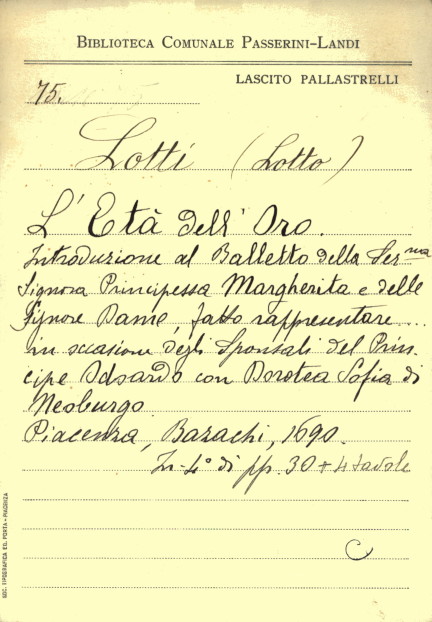 BIBLIOTECA COMUNALE PASSERINI-LANDI
LASCITO PALLASTRELLI
75.
Lotti (Lotto)
L'Età dell'Oro.
Introduzione al Balletto della Ser.ma
Signora Principessa Margherita e delle
Signore Dame, fatto rappresentare....
in occasione degli Sponsali del Prin-
cipe Odoardo con Dorotea Sofia di
Neoburgo
Piacenza, Bazachi, 1690.
In-4° di pp. 30 + 4 tavole
C
SOC. TIPOGRAFICA ED. PORTA - PIACENZA